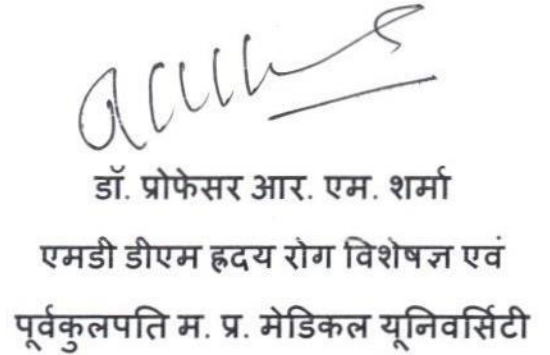 डॉ. प्रोफेसर आर. एम. शर्मा
एमडी डीएम ह्रदय रोग विशेषज्ञ एवं
पूर्वकुलपति म. प्र. मेडिकल यूनिवर्सिटी